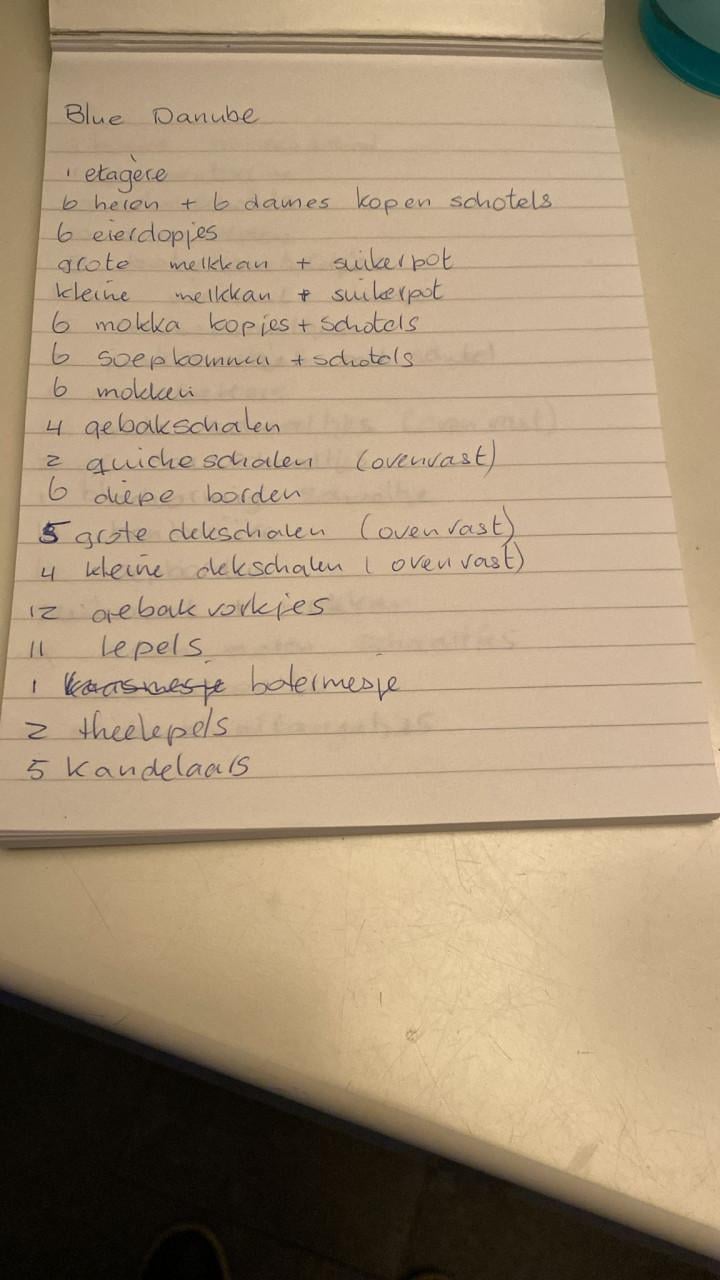 Blue Danube
1 etagère
6 heren + 6 dames kopen schotels
6 eierdopjes
grote melkkan + suikerpot
kleine melkkan + suikerpot
6 mokka kopjes + schotels
6 soepkommen + schotels
6 mokken
4 gebakschalen
2 quiche schalen (ovenvast)
6 diepe borden
5 grote dekschalen (ovenvast)
4 kleine dekschalen (ovenvast)
12 gebakvorkjes
11 lepels
1 kaasmesje botermesje
2 theelepels
5 kandelaars